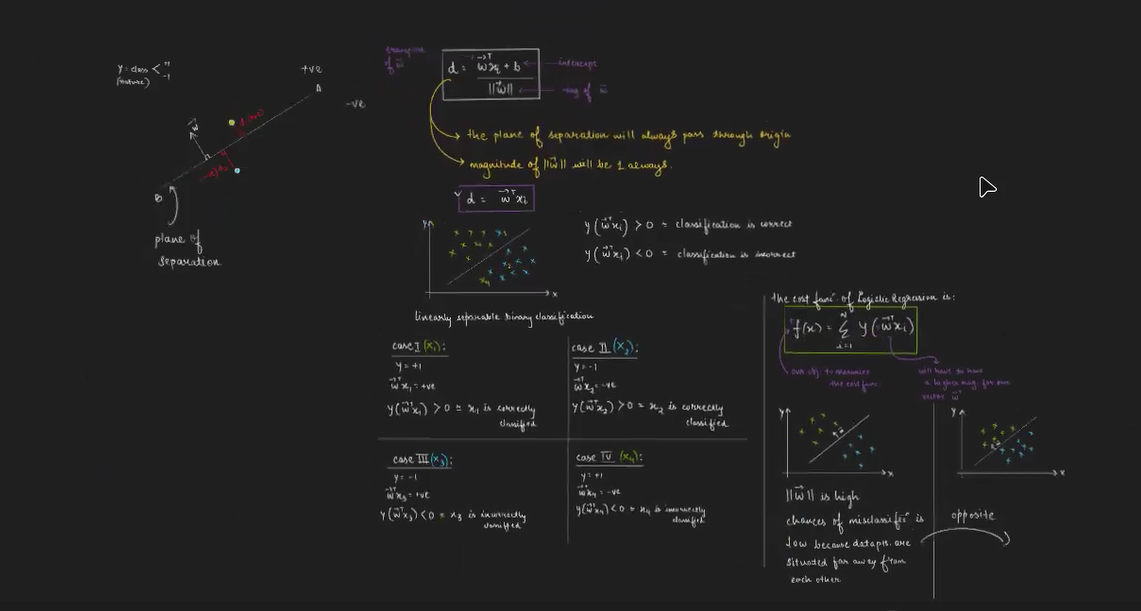 y = class < +1
-1
(feature)
+ve
A
-ve
w
B
plane of
separation
transpose
of w
d = w^T xi + b
||w||
intercept
mag of w
the plane of separation will always pass through origin
magnitude of ||w|| will be 1 always.
d = w^T xi
y (w^T xi) > 0 = classification is correct
y (w^T xi) < 0 = classification is incorrect
y
x3
x2
x4
x
linearly separable binary classification
case I (x1):
y = +1
w^T x1 = +ve
y (w^T x1) > 0 = x1 is correctly
classified
case II (x2):
y = -1
w^T x2 = -ve
y (w^T x2) > 0 = x2 is correctly
classified
case III (x3):
y = -1
w^T x3 = +ve
y (w^T x3) < 0 = x3 is incorrectly
classified
case IV (x4):
y = +1
w^T x4 = -ve
y (w^T x4) < 0 = x4 is incorrectly
classified
the cost func^n of Logistic Regression is:
f(x) = N Σ i=1 y (w^T xi)
our obj. to
the cost func
will have to have
a higher mag. for our
vector w
y
x
||w|| is high
chances of misclassific^n is
low because datapts. are
situated far away from
each other
y
x
opposite